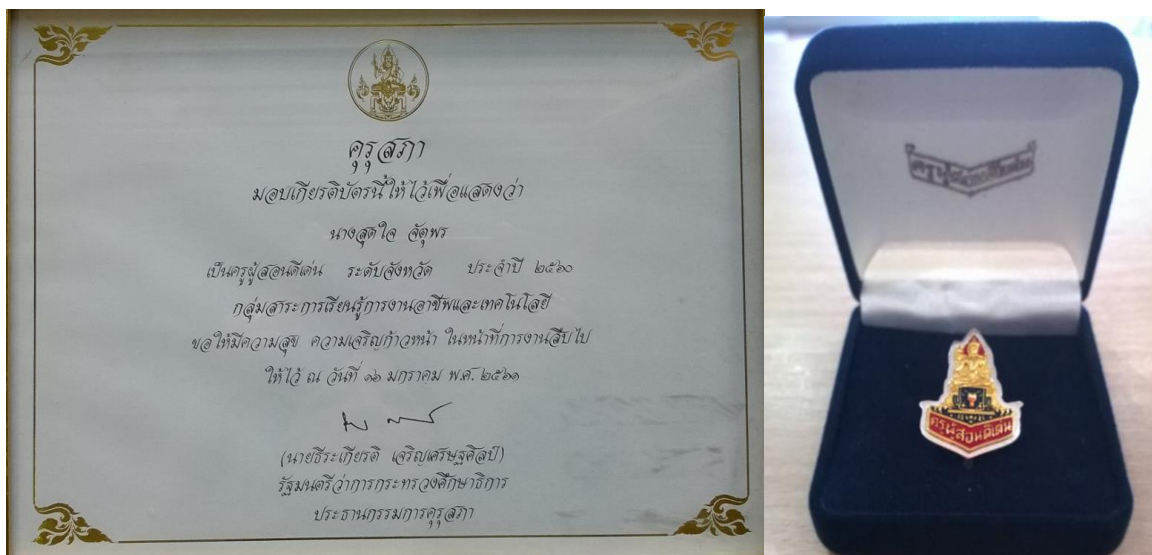 คุรุสภา
มอบเกียรติบัตรนี้ให้ไว้เพื่อแสดงว่า
นางสุดใจ จัตุพร
เป็นครูผู้สอนดีเด่น ระดับจังหวัด ประจำปี ๒๕๖๐
กลุ่มสาระการเรียนรู้การงานอาชีพและเทคโนโลยี
ขอให้มีความสุข ความเจริญก้าวหน้า ในหน้าที่การงานสืบไป
ให้ไว้ ณ วันที่ ๑๖ มกราคม พ.ศ. ๒๕๖๑
(นายธีระเกียรติ เจริญเศรษฐศิลป์)
รัฐมนตรีว่าการกระทรวงศึกษาธิการ
ประธานกรรมการคุรุสภา
ครูผู้สอนดีเด่น
ครูผู้สอนดีเด่น